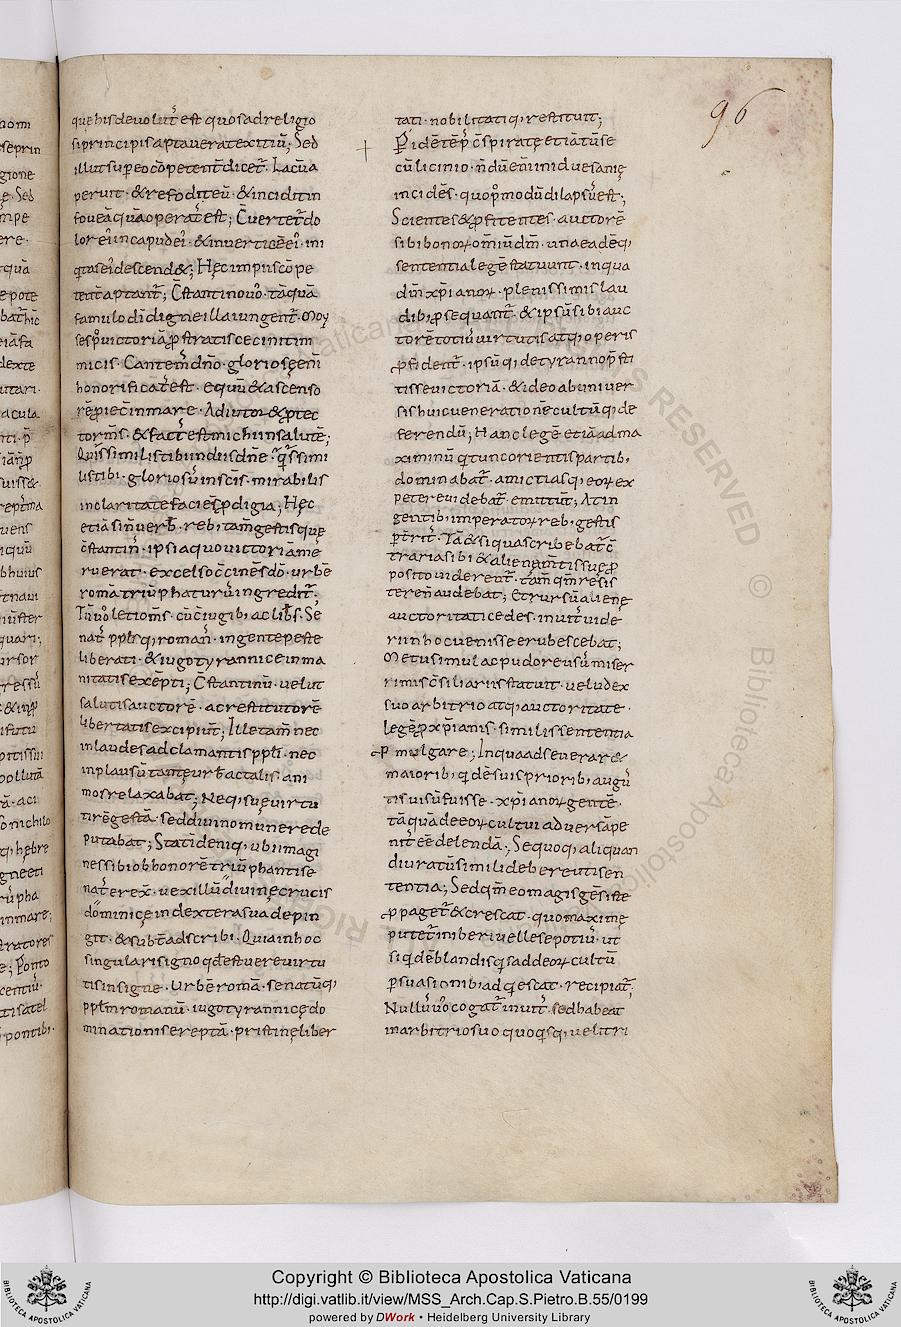 96
quę his deuolut̄ est quos ad religio
si principis aptauerat exitiū; Sed
illut supeo cōpetent̄ dicet̄. Lacū a
peruit. & refodit eū. & incidit in
foueā quā operat̄ est; Cūertet̄ do
lor ei' in capud ei'. & in uerticē ei'. ini
q̄tas ei' descend&; Hęc impiis cōpe
tent̄ aptant̄; Cōstantino uº. tāquā
famulo dī digne illa iungent̄. Moy
ses pº uictoriā ꝓstratis cecinit in
micis. Cantem̄ dnō. gloriosę eni
honorificat̄ est. equū & ascenso
rē ꝓiecit in mare. Adiutor & ꝓtec
tor m̄s. & fact̄ est michi in salutē;
Quis similis tibi in diis dn̄e. quis simi
lis tibi. gloriosus in sc̄is. mirabilis
in claritate faciens ꝓdigia; Hęc
etiā si n̄ uerb. reb; tam̄ gestis quę
cōstantin'. ipsi a quo uictoriā me
ruerat. excelso cōcinēs dō. urbē
romā triūphaturus ingredit̄.
Inuoletiom̄s. cū cōiugib; ac lib̄s. Se
nat' ppl's q; roman'. ingente peste
liberati. & iugo tyrannice inma
nitatis exēpti; Cōstantinū. uelut
salutis auctorē. ac restitutorē
libertatis excipiunt; Ille tam̄ nec
in laudes adclamantis ppl'i. nec
in plausū tantę urb' actalis. ani
mos relaxabat; Neq; suę uirtu
ti rē gestā. sed diuino munere de
putabat; Statī deniq; ubi imagi
nes sibi ob honorē triūphanti se
nat' erex̄. uexillū diuinę crucis
dominicę in dextera sua depin
git. & subt' adscribi. Quia in hoc
singulari signo qđ est uere uirtu
tis insigne. urbē romā. senatūq;
ppl'm romanū. iugo tyrannicę do
minationis ereptā. pristinę liber
tati. nobilitatiq; restituit;
Per idē tēp' cōspiratę etiā tūse
cū licinio. nōdū enī in id uesanię
incidēs. quo pºmodū dilapsus est;
Scientes & ꝓfitentes. auctorē
sibi bonorū omniū dm̄. una eadēq;
sententia legē statuunt. in qua
dm̄ xp̄ianorū. plenissimis lau
dib; ꝓsequant̄. & ipsū sibi auc
torē toti' uirtutis atq; operis
ꝓfident̄. ipsūq; de tyranno pºsti
tisse uictoriā. & ideo ab uniuer
sis huic uenerationē cultūq; de
ferendū; Hanc legē etiā ad ma
ximinū q̄ tunc orientis partib;
dominabat̄. amicitiasq; eorū ex
petere uidebat̄. emittunt; At in
gentib; imperatorū reb; gestis
trariā sibi & alienam̄ tissuę ꝓ
posito uiderent̄. tam̄ qm̄ resis
tere n̄ audebat; Et rursū alienę
auctoritati cedes. inuit' uide
ri in hoc uenisse erubescebat;
Metu simul ac pudore usus miser
rimis cōsiliariis statuit. uelud ex
suo arbitrio atq; auctoritate.
legē ꝓ xp̄ianis. similis sententia
ꝓmulgare; In qua adseuerar&
maiorib; q̄dē suis priorib; augus
tis uisū fuisse. xp̄ianorū gentē.
tāquā de eorū cultui aduersā pe
nit' eē delendā; Se quoq; aliquan
diu ratus simili deberę uti sen
tentia; Sed qm̄ eo magis gēs iste
ꝓpaget̄ & crescat. quo maximę
putet̄ inhiberi uelle se potius. ut
siq̄dē blandis q̄s ad deorū cultū
ꝑsuasionib; adq̄escat. recipiat̄;
Nullus uº cogat̄ inuit'. sed habeat
in arbitrio suo quoq̄sq; uelit ri
Copyright © Biblioteca Apostolica Vaticana
http://digi.vatlib.it/view/MSS_Arch.Cap.S.Pietro.B.55/0199
powered by DWork • Heidelberg University Library